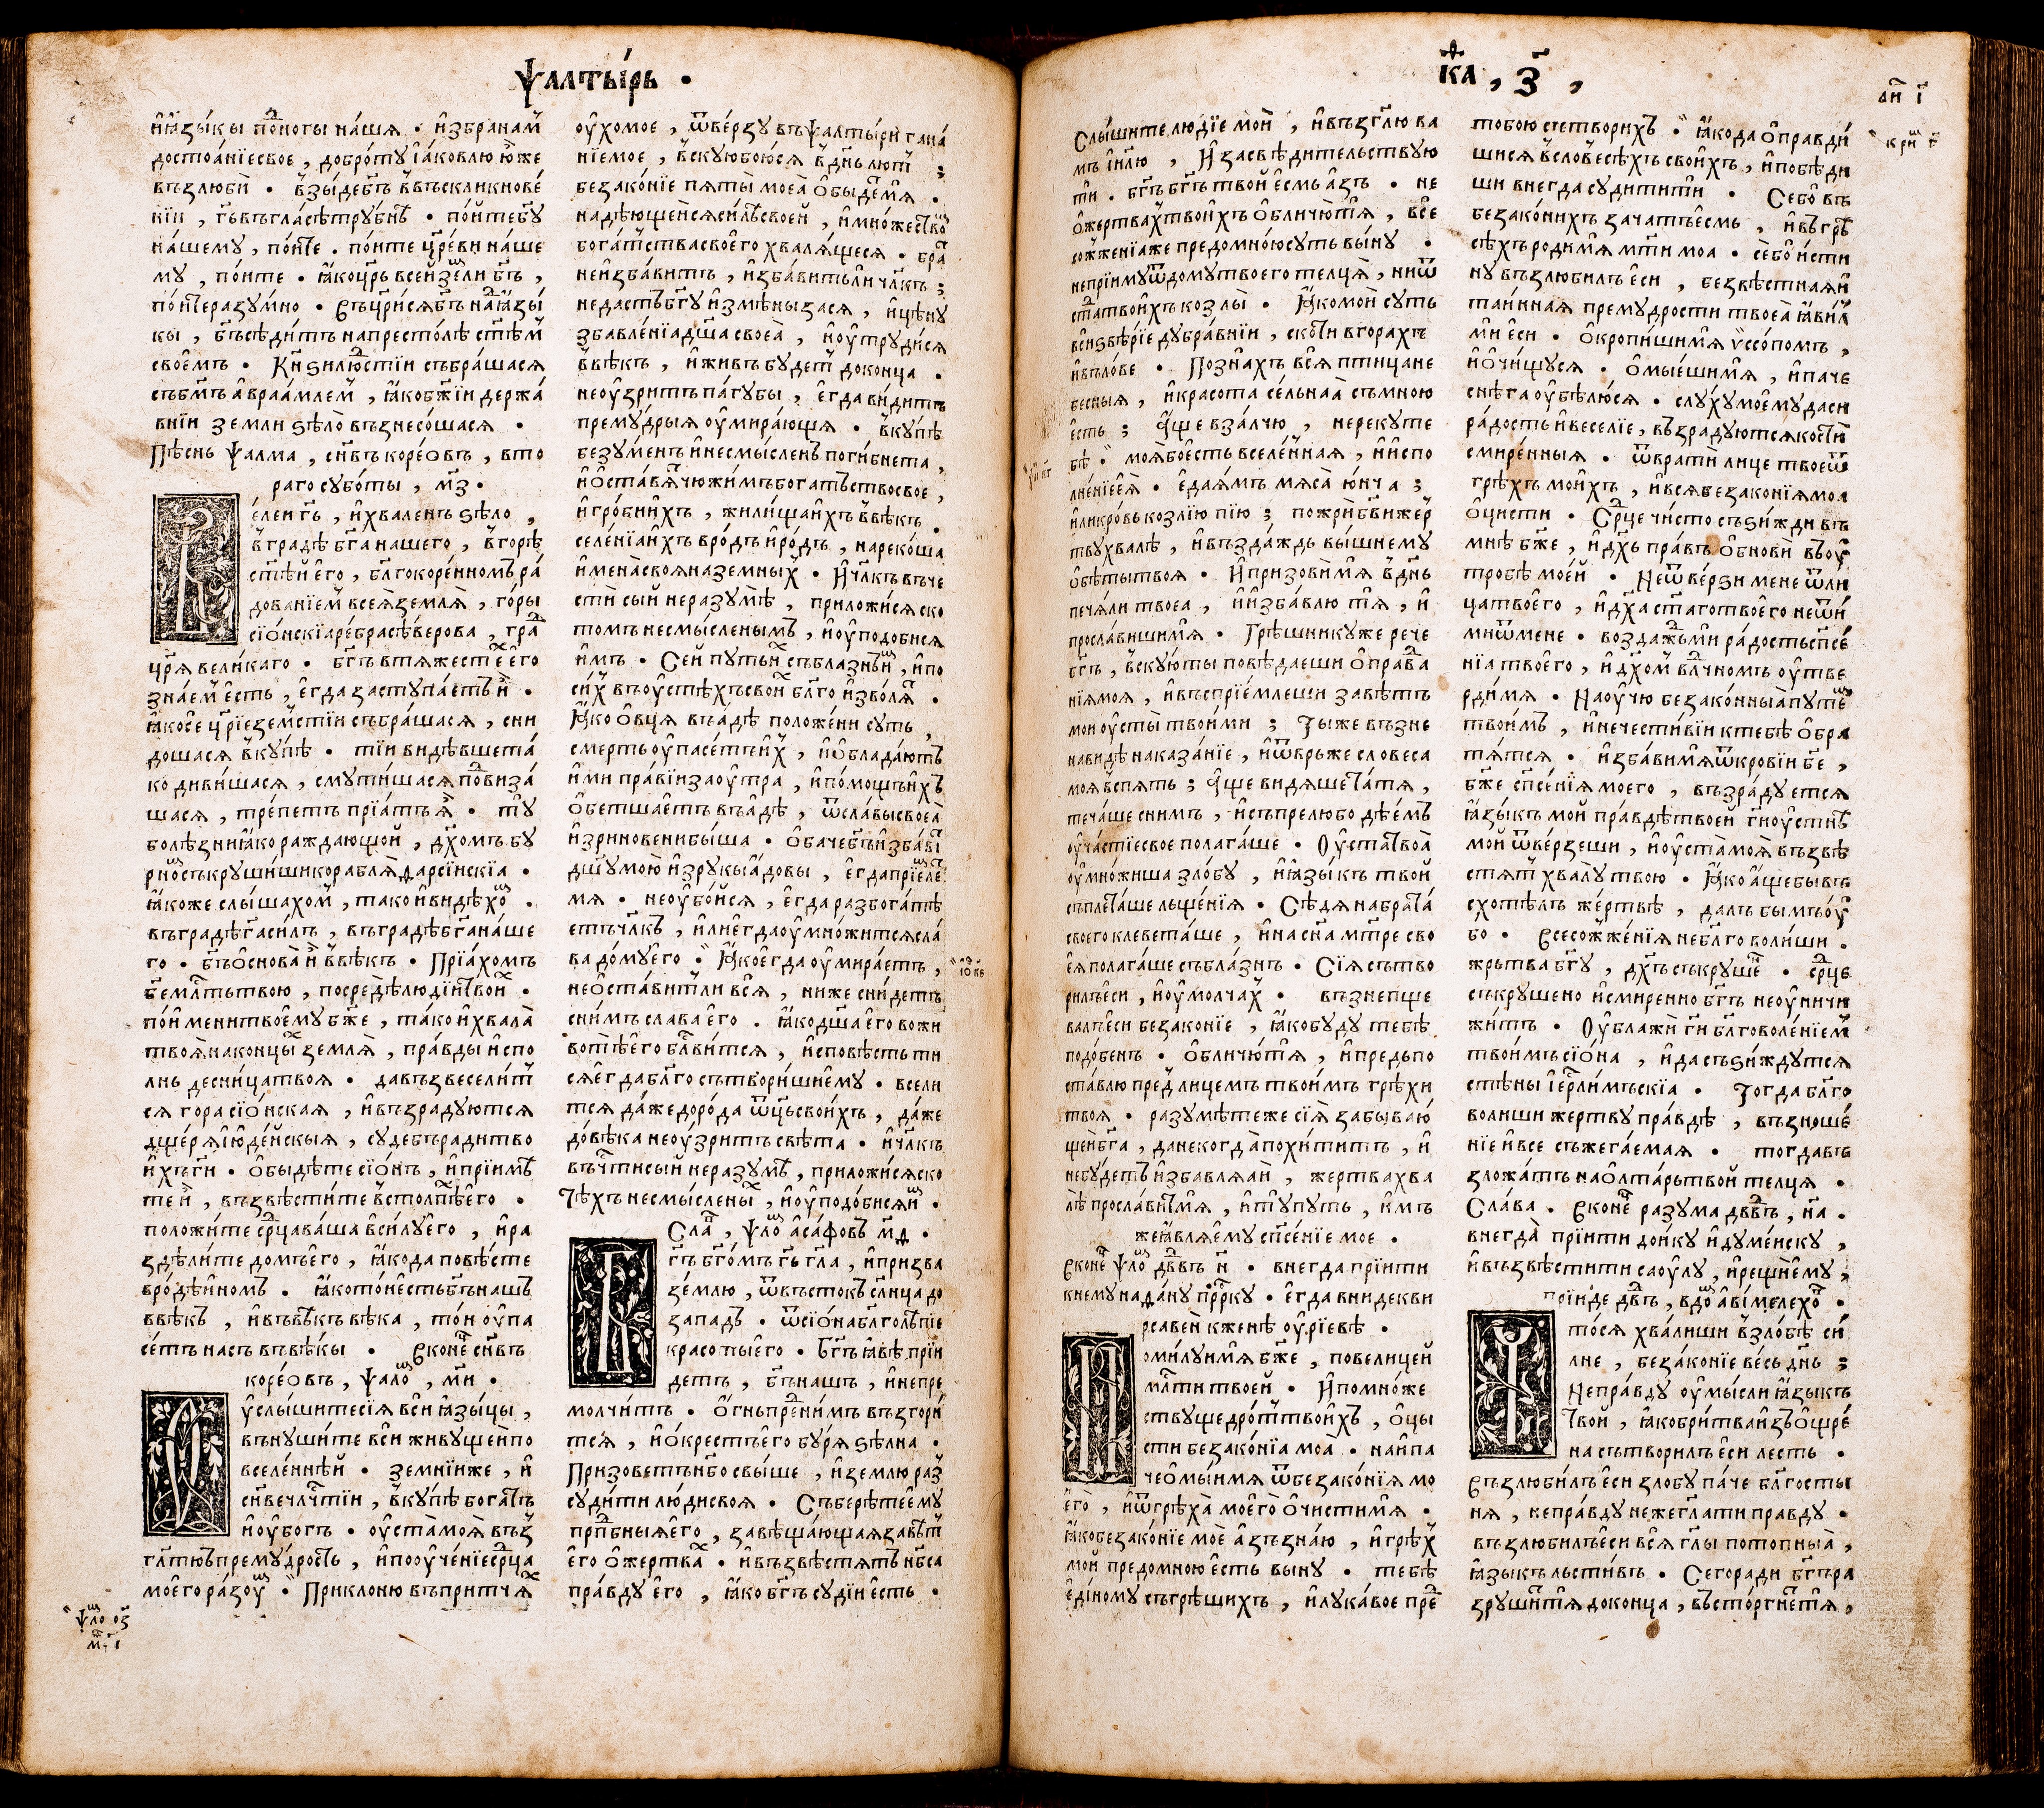 Ѱалты́рь .
и҆ꙗ҆зы́кы по́дногы на́шѧ . и҆збра на́м
достоѧ́нїе свое , добро́ту і҆а́ковлю ю҆́же
възлюби̑ . взы́де бг҃ъ въ въскликнове́
нїи , гь҃ въ гла́сѣ трубнѣ . по́йте бг҃у
на́шему , по́йте . по́ите цр҃е́ви на́ше
му , по́ите . ꙗ҆ко цр҃ь всей земли бг҃ъ ,
по́йте разу́мно . Въцр҃и́сѧ бг҃ъ над ꙗ҆зы́
кы , бг҃ъ сѣди́тъ на престо́лѣ ст҃ѣм
свое́мъ . Кнѧзи лю́стїи събра́шасѧ
съ бг҃мъ а҆враа́млем , ꙗ҆ко бж҃їи держа́
внїи земли ѕѣло̀ възнесо́шасѧ .
Пѣснь ѱалма , сн҃въ коре́овъ , вто
раго субо́ты , м҃з .
е́леи гь҃ , и҆ хваленъ ѕѣло ,
в гра́дѣ бг҃а нашего , в горѣ
ст҃ѣй е҆го , бл҃гокоре́нномъ ра́
дованїем всеѧ̀ землѧ̀ , го́ры
сїо́нскїа ре́бра сѣ́верова , град
цр҃ѧ вели́каго . бг҃ъ в тѧжестех е҆го
зна́ем е҆́сть , е҆гда̀ заступа́етъ и҆̀ .
ꙗ҆ко се цр҃їе земстїи събра́шасѧ , сни
дошасѧ вку́пѣ . тїи ви́дѣвше та́
ко диви́шасѧ , смути́шасѧ подвиза́
шасѧ , тре́петъ прїѧ́тъ ѧ҆̀ . ту
болѣзни ꙗ҆ко раждающой , дх҃омъ бу
рном съкруши́ши кораблѧ̀ ѳарсі́нскїа .
ꙗ҆коже слы́шахом , тако и҆ ви́дѣхом .
въ гра́дѣ гa си́лъ , въ гра́дѣ бг҃а на́ше
го . бг҃ъ о҆снова̀ и҆̀ в вѣкъ . Прїа́хомъ
бж҃е мл҃ть твою , посредѐ лю́дїи твоих .
по и҆́мени твое́му бж҃е , та́ко и҆ хвала̀
твоѧ̀ на концы́х землѧ̀ , пра́вды и҆спо
лнь десни́ца твоѧ . да възвесели́т
сѧ гора сїо́нская , и҆ възра́дуютсѧ
дще́рѧ і҆юде́йскыѧ , суде́бъ ради тво
и҆́хъ ги҃ . О҆быдѣте сїо́нъ , и҆ прїимѣ
те и҆̀ , възвѣсти́те в столпѣх е҆го .
положи́те срд҃ца ва́ша в си́лу е҆го , и҆ ра
здѣли́те домъ е҆го , ꙗ҆ко да повѣ́сте
в ро́дъ и҆́номъ . ꙗ҆ко то́й е҆сть бг҃ъ нашъ
в вѣкъ , и҆ въ вѣкъ вѣка , то́и оупа
се́тъ насъ въ вѣ́кы . В конец сн҃въ
коре́овъ , ѱало́м , м҃и .
у҆слы́шите сїѧ вси ꙗ҆зы́цы ,
вънуши́те вси живущей по
вселе́ннѣй . земнїи же , и҆
сн҃ве чл҃чтїи , вку́пѣ богатъ
и҆ оубогъ . оуста̀ моѧ̀ въз
гл҃ютъ премудрость , и҆ пооуче́нїе срд҃ца
моего ра́зоум . Приклоню въ притчѧх
оу҆хо мое , ѿве́рзу въ ѱалты́ри гана́
нїе мое , вскую бою́сѧ в дн҃ь лют ;
безако́нїе пѧты̀ моеѧ̀ о҆быде́т мѧ .
надѣющейсѧ си́лѣ своей , и҆ мно́жеством
бога́тства своего хвалѧ́щесѧ . брат
не и҆зба́витъ , и҆зба́вить ли чл҃къ ;
недастъ бг҃у и҆змѣны засѧ , и҆ цѣну
збавле́нїа дш҃а своеѧ̀ , и҆ оутруди́сѧ
в вѣкъ , и҆ живъ бу́дет до конца .
не оу҆зритъ па́губы , е҆гда ви́дитъ
прему́дрыѧ оумира́ющѧ . вку́пѣ
безу́менъ и҆ несмы́сленъ поги́бнета ,
и҆ о҆ста́вѧт чюжи́мъ бога́тьство свое ,
и҆ гро́би и҆хъ , жили́ща и҆хъ в вѣкъ .
селе́нїа и҆хъ в ро́дъ и҆ ро́дъ , нареко́ша
и҆мена̀ своѧ на земных . И҆ чл҃къ въ че
сти сый не разумѣ , приложи́сѧ ско
томъ несмы́сленымъ , и҆ оуподобисѧ
и҆́мъ . Сей путь и҆х съблазнъ и҆м , и҆ по
си́х въ оустѣхъ свои́х бл҃го и҆зво́лѧт .
Ꙗ҆ко о҆вцѧ въ а́дѣ положе́ни суть ,
смерть оупасе́тъ и҆х , и҆ о҆блада́ютъ
и҆ми пра́вїи заоутра , и҆ по́мощь и҆хъ
о҆бетша́етъ въ а́дѣ , ѿ сла́вы своеѧ̀
и҆зринове́ни бы́ша . О҆баче бг҃ъ и҆зба́вит
дш҃у мою̀ и҆з рукы а҆́довы , е҆гда прїе́млет
мѧ . не оубо́йсѧ , е҆гда разбога́тѣ
етъ чл҃къ , и҆ли е҆гда оумно́житсѧ сла́
ва до́му е҆го . Ꙗ҆ко е҆гда оумира́етъ ,
не о҆ста́витъ ли всѧ , ниже сни́детъ
сни́мъ слава е҆го . ꙗ҆ко дш҃а е҆го в жи
вотѣ е҆го бл҃ви́тсѧ , и҆сповѣсть ти
сѧ е҆гда бл҃го сътвори́ши е҆му . всели
тсѧ да́же до ро́да ѿц҃ь свои́хъ , да́же
до́ вѣка не оузритъ свѣ́та . и҆ чл҃къ
въ ч҃ти сый не разумѣ , приложи́сѧ ско
тѣхъ несмы́слены́х , и҆ оуподо́бисѧ и҆м .
Слав , ѱало́м а҆са́фовъ м҃ѳ .
гь҃ бг҃омъ гь҃ гл҃а , и҆ призва
зе́млю , ѿ въстокъ сл҃нца до
западъ . ѿ сїо́на бл҃голѣпїе
красоты е҆го . бг҃ъ ꙗ҆вѣ прїи
детъ , бг҃ъ нашъ , и҆ непре
молчи́тъ . О҆гнь пред ни́мъ възгори
тсѧ , и҆ о҆́крестъ е҆го бу́рѧ ѕѣлна .
Призоветъ нб҃о свы́ше , и҆ землю раз
суди́ти лю́ди своѧ . Съберѣте е҆му
прп҃бныѧ е҆го , завѣща́ющаѧ завѣт
е҆го о҆ жертвах . и҆ възвѣстѧтъ нб҃са
пра́вду е҆го , ꙗ҆ко бг҃ъ судїи е҆сть .
ѱало о҃з
м,т і
ю́в к҃в
каѳ , з҃ ,
дн҃ и҃
Слы́шите лю́дїе мои̑ , и҆ възгл҃ю ва
мъ і҆и҃лю , И҆ засвѣдительствую
ти . бг҃ъ бг҃ъ твой е҆смь а҆зъ . не
о҆ жертвах твои́хъ о҆бличю́ тѧ , все
сожже́нїа же предомно́ю суть вы́ну .
неприиму ѿ дому твоего телцѧ̀ , ни ѿ
стад твои́хъ козлы̀ . Ꙗ҆ко мои̑ суть
вси ѕвѣрїе дубра́внїи , скоти в гора́хъ
и҆ въло́ве . Позна́хъ всѧ птица не
бесныѧ , и҆ красота се́льнаѧ̀ съ мною
е҆сть ; А҆ще вза́лчю , не реку те
бѣ . моѧ̀ бо е҆сть вселе́нная , и҆ и҆спо
лне́нїе е҆ѧ . е҆да ꙗ҆мъ мѧса̀ ю҆нча ;
и҆ли кро́вь козлїю пїю ; пожри̑ бг҃ви же́р
тву хвалѣ , и҆ въздаждь вы́шнему
о҆бѣты твоѧ . И҆ призови́ мѧ в дн҃ь
печа́ли твоеа , и҆ и҆зба́влю тѧ , и҆
просла́виши мѧ . Грѣшнику же рече
бг҃ъ , вскую́ ты повѣдаеши о҆правда
нїѧ моѧ , и҆ въсприе́млеши завѣтъ
мои оусты̀ твои́ми ; Ты же възне
навидѣ наказа́нїе , и҆ ѿвръже словеса
моѧ вспѧть ; А҆ще ви́дѧше та́тѧ ,
тeча́ше с нимъ , и҆ съ прелюбодѣе́мъ
оуча́стїе свое полага́ше . Оуста̀ твоѧ̀
оумно́жиша зло́бу , и҆ ꙗ҆зы́къ твой
съплета́ше льще́нїѧ . Сѣ́дѧ на бра́та
своего клевета́ше , и҆ на сн҃а мт҃ре сво
еѧ полага́ше събла́знъ . Сїѧ сътво
рилъ е҆си , и҆ оумолчах . възнепще
валъ е҆си безаконїе , ꙗ҆ко бу́ду тебѣ
подо́бенъ . о҆бличю́ тѧ , и҆ предъпо
ста́влю пред лицемъ твои́мъ грѣхи
твоѧ . разумѣ́те же сїѧ̀ забываю́
щей бг҃а , да некогда̀ похи́титъ , и҆
небу́детъ и҆збавлѧѧй , жертва хва
лѣ просла́вит мѧ , и҆ ту́ пу́ть , и҆мъ
же ꙗ҆влѧ́ е҆му спс҃е́нїе мое .
В конец ѱало́м дв҃дъ н҃ . внегда прїити
к нему наѳа́ну прр҃ку . е҆гда вниде к ви
рсаве́и к женѣ оурїевѣ .
оми́луи мѧ бж҃е , по вели́цей
мл҃ти твоей . И҆ по мно́же
ству ще́дрот твои́хъ , о҆цы
сти безако́нїа моѧ̀ . на́и па
че о҆мы́и мѧ ѿ безако́нїѧ мо
е҆го , и҆ ѿ грѣха̀ моего̀ о҆чисти́ мѧ .
ꙗ҆ко безако́нїе моѐ а҆зъ зна́ю , и҆ грѣх
мой предомною е҆сть вы́ну . тебѣ
е҆ди́ному съгрѣши́хъ , и҆ лука́вое пред
тобо́ю сътвори́хъ . ꙗ҆ко да о҆правди́
шисѧ в словесѣ́хъ свои́хъ , и҆ побѣди
ши внегда̀ суди́ти ти . Се бо въ
безако́нихъ зача́тъ е҆смь , и҆ въ грѣ
сѣ́хъ роди́ мѧ мт҃и моѧ . се́ бо и҆сти
ну възлюби́лъ е҆си , безвѣ́стнаѧ и҆
та́йнаѧ прему́дрости твоеѧ̀ ꙗ҆ви́л
ми е҆си . О҆кропи́ши мѧ ѵ҆ссо́помъ ,
и҆ о҆чи́щусѧ . О҆мы́еши мѧ , и҆ паче
снѣ́га оубѣлю́сѧ . слу́ху мо́ему даси
ра́дость и҆ весе́лїе , възра́дуютсѧ кости
смире́нныѧ . ѿврати̑ лице твое ѿ
грѣ́хъ мои́хъ , и҆ всѧ безако́нїѧ моа
о҆цисти . Срд҃це чи́сто съзи́жди въ
мнѣ бж҃е , и҆ дх҃ъ пра́въ о҆бнови̑ въ оу
тробѣ мое́й . Не ѿве́рзи мене ѿ ли
ца твоего , и҆ дх҃а ст҃аго твоего не ѿи́
ми ѿ мене . воздажьми ра́дость спс҃е́
нїа твоего , и҆ дх҃ом вл҃чномъ оутве
рди́ мѧ . Наоучю безако́нныѧ пу́тем
твои́мъ , и҆ нечести́вїи к тебѣ о҆бра
тѧ́тсѧ . и҆зба́ви мѧ ѿ кро́вїи бж҃е ,
бж҃е спс҃е́нїѧ моего , възра́дуетсѧ
ꙗ҆зы́къ мой пра́вдѣ твоей гн҃и оустнѣ
мой ѿве́рзеши , и҆ оуста̀ моѧ̀ възвѣ
стѧт хвалу̀ твою . Ꙗ҆ко а҆́ще бы въ
схотѣ́лъ же́ртвѣ , далъ бы́мъ оу
бо . Всесожже́нїѧ не бл҃говоли́ши .
жрътва бг҃у , дх҃ъ съкруше́н . срд҃це
съкрушено и҆ смиренно бг҃ъ не оуничи
жи́тъ . Оублажи̑ ги҃ бл҃говоле́нїем
твои́мъ сїо́на , и҆ да съзи́ждутсѧ
стѣны і҆ер҃ли́мъскїа . Тогда бл҃го
волиши жертву пра́вдѣ , възноше́
нїе и҆ все съжега́емаѧ . тогда въ
зложа́тъ на о҆лта́рь твой телцѧ .
Слава . В конец разума дв҃дъ , н҃а .
внегда̀ прїи́ти до́йку и҆думе́йску ,
и҆ възвѣсти́ти сао́улу , и҆ рещи е҆му ,
прїи́де дв҃дъ , в до́м а҆вимелехов .
то́сѧ хва́лиши в зло́бѣ си́
лне , безако́нїе ве́сь дн҃ь ;
Непра́вду оумы́сли ꙗ҆зыкъ
твой , ꙗ҆ко бри́тва и҆зъо҆щре́
на сътвори́лъ е҆си лесть .
Възлюби́лъ е҆си зло́бу па́че бл҃госты
нѧ , непра́вду не́же гл҃ати правду .
възлюби́лъ е҆си всѧ гл҃ы потопныѧ̀ ,
ꙗ҆зы́къ льсти́въ . Сего ради бг҃ъ ра
зруши́т тѧ до конца , въсто́ргнет тѧ ,